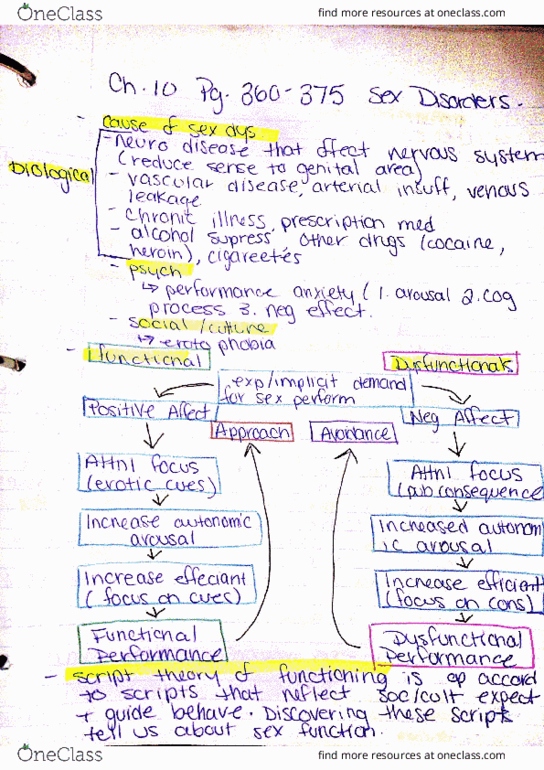 OneClass
find more resources at oneclass.com
Ch. 10 Pg. 360-375 Sex Disorders.
- cause of sex dys.
Biological
- neuro disease that effect nervous system
(reduce sense to genital area)
- vascular disease, arterial insuff, venous
leakage
- chronic illness, prescription med
- alcohol supress, other drugs (cocaine,
heroin), cigareetes
- psych
↳ performance anxiety (1. arousal 2. cog
process 3. neg effect.
- social/culture
↳ eroto phobia
- functional
Disfunctionals
exp/implicit demand
for sex perform
Positive Affect
Neg Affect
Approach
Avoidance
Attnl focus
(erotic cues)
Attnl focus
(pub consequence
Increase autonomic
arousal
Increased autonom
ic arousal
Increase effeciant
(focus on cues)
Increase efficient
(focus on cons)
Functional
Performance
Dysfunctional
Performance
- script theory of functioning is op accord
to scripts that reflect soc/cult expect
+ guide behave. Discovering these scripts
tell us about sex function.
OneClass
find more resources at oneclass.com